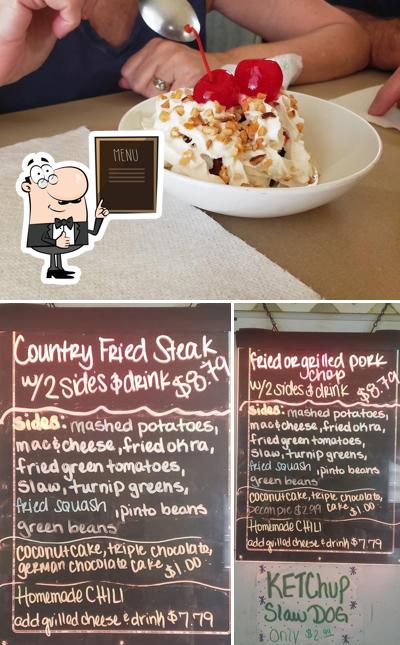 MENU
Country Fried Steak
w/2 sides & drink $8.79
sides: mashed potatoes,
mac & cheese, fried okra,
fried green tomatoes,
slaw, turnip greens,
fried squash, pinto beans
green beans
coconut cake, triple chocolate,
german chocolate cake $1.00
Homemade CHILI
add grilled cheese & drink $7.79
fried or grilled pork
chop
w/2 sides & drink $8.79
sides: mashed potatoes,
mac & cheese, fried okra,
fried green tomatoes,
slaw, turnip greens,
fried squash, pinto beans
green beans
coconut cake, triple chocolate,
pecan pie $2.99 cake $1.00
Homemade CHILI
add grilled cheese & drink $7.79
KETCHUP
Slaw DOG
Only $2.99